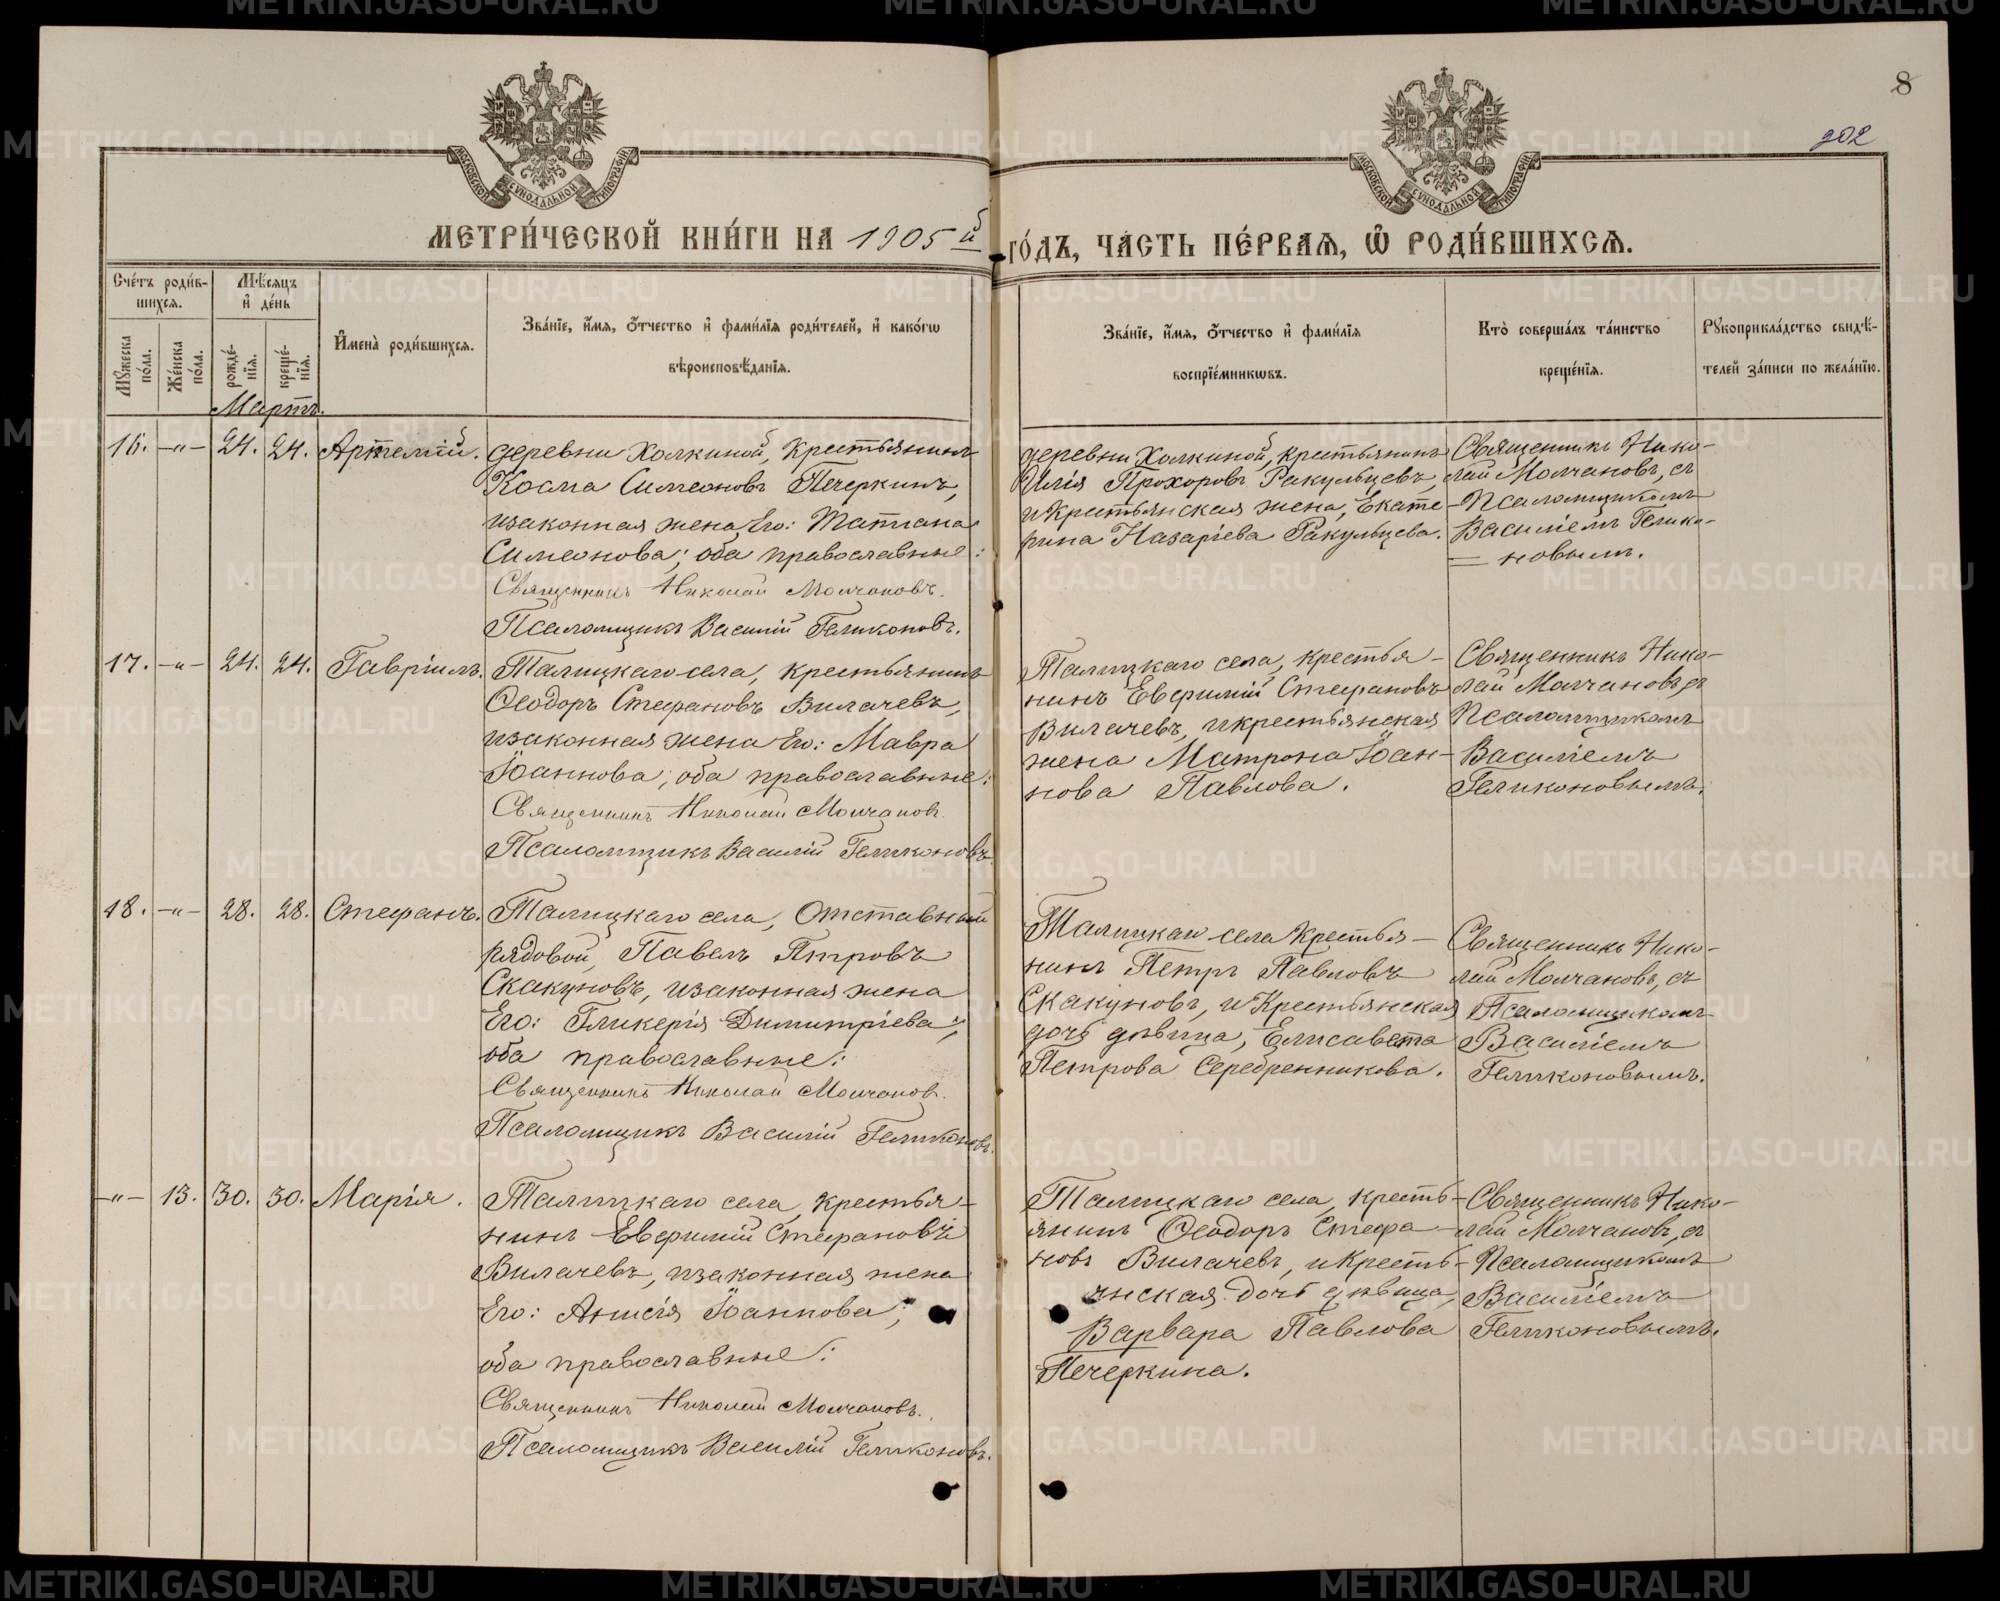 8
202
МЕТРИ́ЧЕСКОЙ КНИ́ГИ НА 1905й ГО́ДЪ, ЧА́СТЬ ПЕ́РВАЯ, Ѡ҆ РОДИ́ВШИХСЯ.
Сче́тъ роди́в-
шихся.
Мѣ́сяцъ
и҆ де́нь
Мꙋ́жеска по́ла.
Же́нска по́ла.
рожде́-
нїя.
креще́-
нїя.
И҆мена̀ роди́вшихся.
Зва́нїе, и҆́мя, ѻ҆́тчество и҆ фами́лїя роди́телей, и҆ како́гѡ
вѣроисповѣ́данїя.
Зва́нїе, и҆́мя, ѻ҆́тчество и҆ фами́лїя
воспрїе́мникѡвъ.
Кто̀ соверша́лъ та́инство
креще́нїя.
Рꙋкоприкла́дство свидѣ́-
телей за́писи по жела́нїю.
Мартъ.
16. -"- 24. 24. Артемій.
деревни Холкиной, Крестьянинъ
Косма Симеоновъ Печеркинъ,
изаконная жена Его: Татiана
Симеонова; оба православные:
Священникъ Николай Молчановъ.
Псаломщикъ Василій Геликоновъ.
деревни Холкиной, крестьянинъ
Илія Прохоровъ Ракульцевъ,
и Крестьянская жена, Екате-
рина Назаріева Ракульцева.
Священникъ Нико-
лай Молчановъ, съ
Псаломщикомъ
Василіемъ Гелико-
новымъ.
17. -"- 24. 24. Гавріилъ.
Талицкаго села, крестьянинъ
Ѳеодоръ Стефановъ Вилачевъ,
изаконная жена Его: Мавра
Іоаннова; оба православные:
Священникъ Николай Молчановъ.
Псаломщикъ Василій Геликоновъ.
Талицкаго села, крестья-
нинъ Евфимій Стефановъ
Вилачевъ, икрестьянская
жена Матрона Іоан-
нова Павлова.
Священникъ Нико-
лай Молчановъ, съ
Псаломщикомъ
Василіемъ
Геликоновымъ.
18. -"- 28. 28. Стефанъ.
Талицкаго села, Отставный
рядовой, Павелъ Петровъ
Скакуновъ, изаконная жена
Его: Гликерія Димитріева;
оба православные:
Священникъ Николай Молчановъ.
Псаломщикъ Василій Геликоновъ.
Талицкаго села Крестья-
нинъ Петръ Павловъ
Скакуновъ, и Крестьянская
дочь дѣвица, Елисавета
Петрова Серебренникова.
Священникъ Нико-
лай Молчановъ, съ
Псаломщикомъ
Василіемъ
Геликоновымъ.
-"- 13. 30. 30. Марія.
Талицкаго села, крестья-
нинъ Евфимій Стефановъ
Вилачевъ, изаконная жена
Его: Анисія Іоаннова;
оба православные:
Священникъ Николай Молчановъ.
Псаломщикъ Василій Геликоновъ.
Талицкаго села, кресть-
янинъ Ѳеодоръ Стефа-
новъ Вилачевъ, и Кресть-
янская дочь дѣвица,
Варвара Павлова
Печеркина.
Священникъ Нико-
лай Молчановъ, съ
Псаломщикомъ
Василіемъ
Геликоновымъ.
METRIKI.GASO-URAL.RU